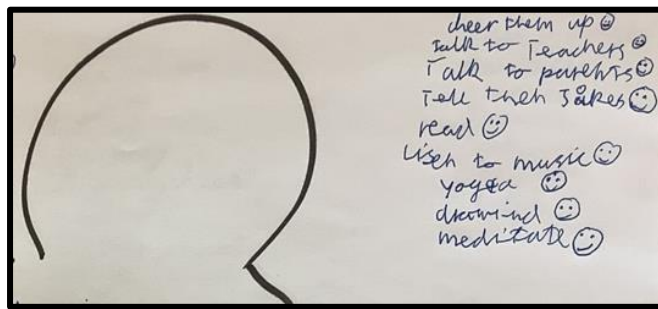 cheer them up
talk to Teachers
Talk to parents
Tell then Jokes
read
Lisen to music
yogea
drowind
meditate